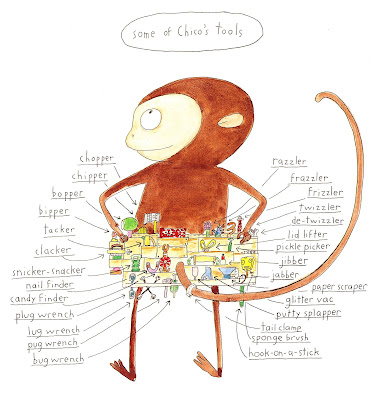 some of Chico's tools
chopper
chipper
bopper
bipper
tacker
clacker
snicker-snacker
nail finder
candy finder
plug wrench
lug wrench
pug wrench
bug wrench
razzler
frazzler
frizzler
twizzler
de-twizzler
lid lifter
pickle picker
jibber
jabber
paper scraper
glitter vac
putty splapper
tail clamp
sponge brush
hook-on-a-stick